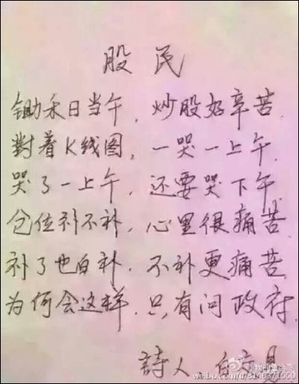 股民
锄禾日当午，炒股好辛苦
對着K线图，一哭一上午
哭了一上午，还要哭下午
仓位补不补，心里很痛苦
补了也白补，不补更痛苦
为何会这样，只有问政府
詩人